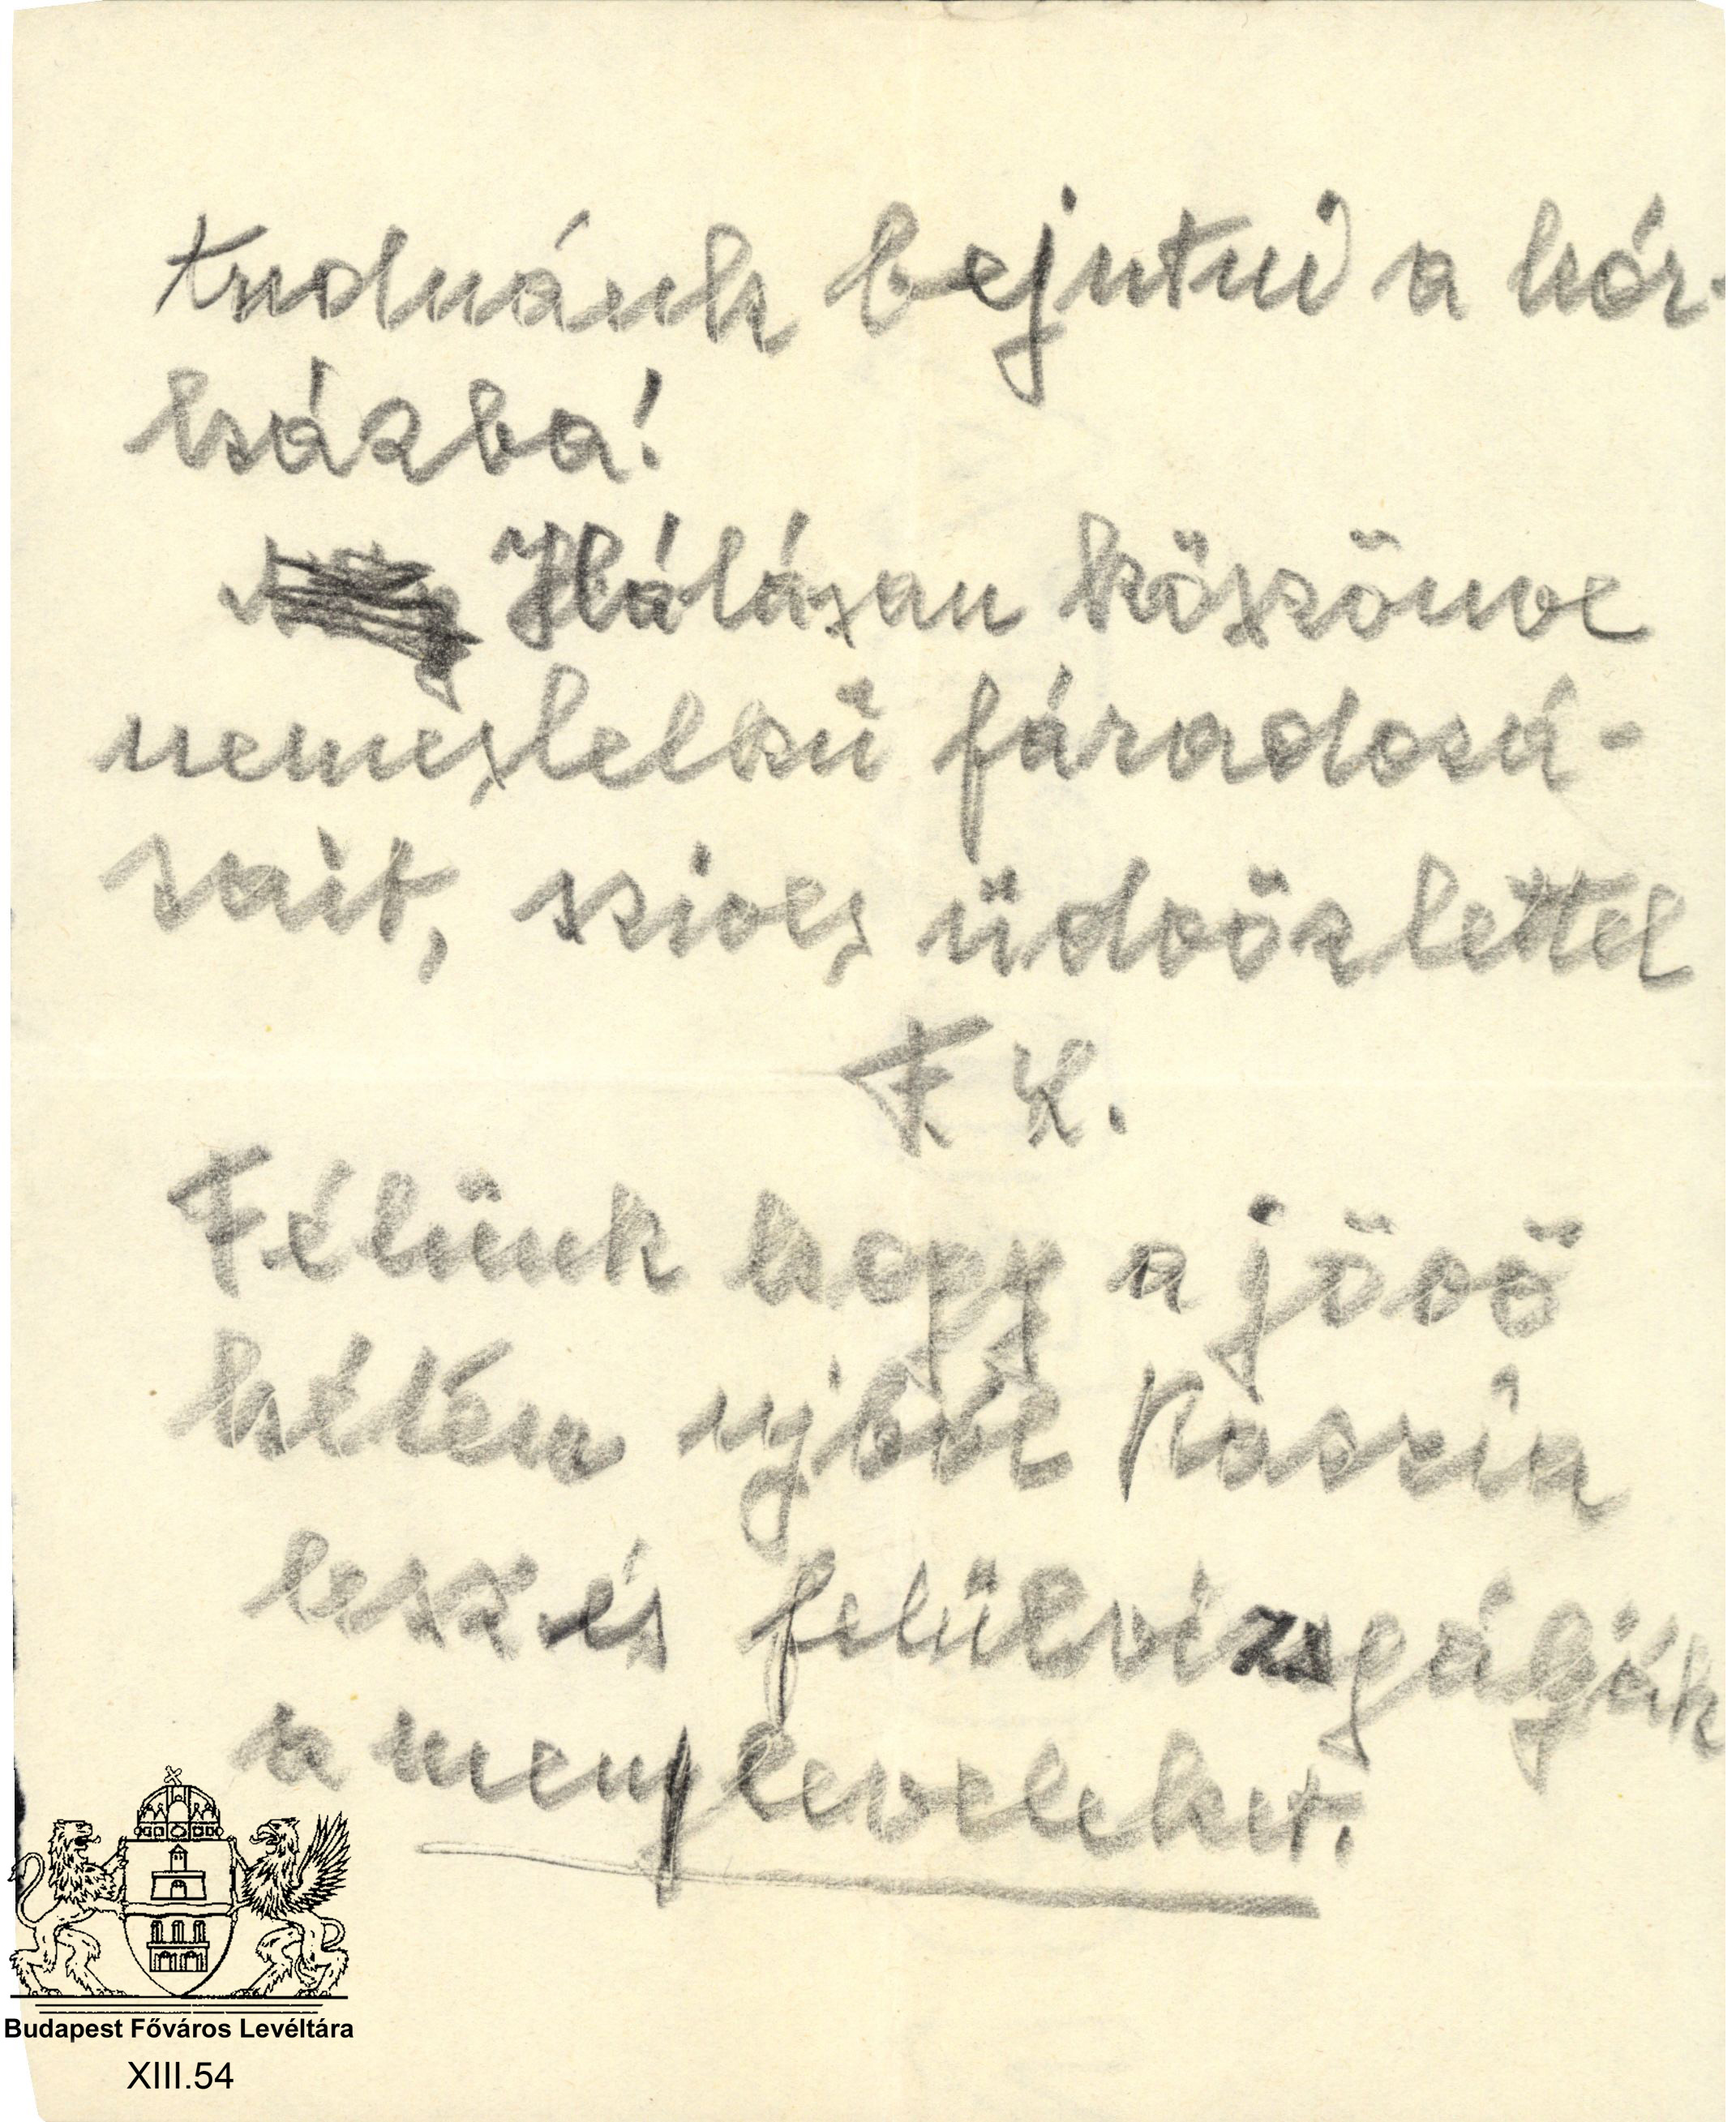 tudnánk bejutni a kór-
házba!
Hálásan köszönve
nemeslelkü fáradozá-
sait, szives üdvözlettel
F. K.
Félünk hogy a jövö
héten ujból razzia
lesz és felülvizsgálják
a menleveleket.
Budapest Főváros Levéltára
XIII.54